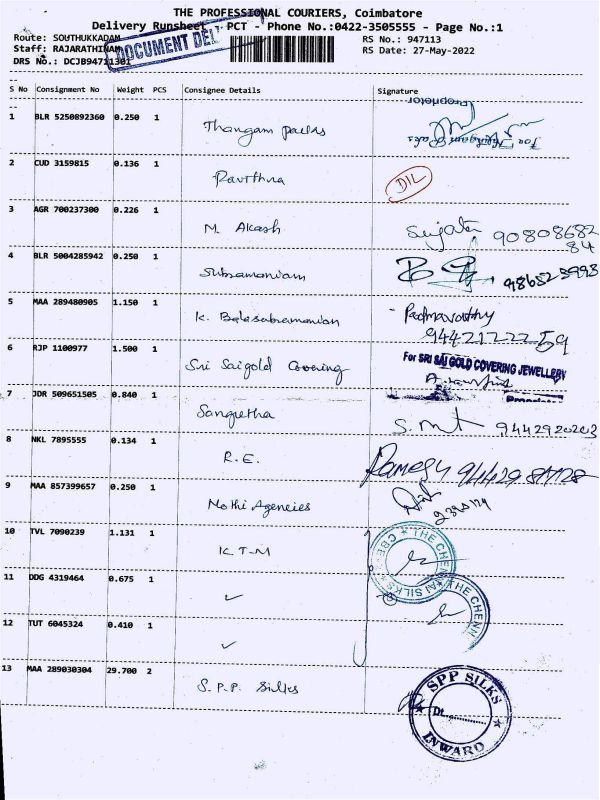 THE PROFESSIONAL COURIERS, Coimbatore
Delivery Runsheet - PCT - Phone No.:0422-3505555 - Page No.:1
Route: SOUTHUKKADAM
RS No.: 947113
Staff: RAJARATHINAM
RS Date: 27-May-2022
DRS No.: DCJB94711301
DOCUMENT DEL
S No Consignment No Weight PCS Consignee Details Signature
1 BLR 5250892360 0.250 1 Thangam
Proprietor
For
2 CUD 3159815 0.136 1 Pavithra DIL
3 AGR 700237300 0.226 1 M. Akash Sujata 90808682
84
4 BLR 5004285942 0.250 1 Subramaniam
5 MAA 289480905 1.150 1 K. Balasubramanian
6 RJP 1100977 1.500 1 Sri Saigold Covering For SRI SAI GOLD COVERING JEWELLERY
7 JDR 509651505 0.840 1 Sangeetha 9442920203
8 NKL 7895555 0.134 1 R.E. Ramesh
9 MAA 857399657 0.250 1 Mothi Agencies
10 TVL 7090239 1.131 1 K T M THE CHENNAI SILKS CBE
11 DDG 4319464 0.675 1 ✓ THE CHENN
12 TUT 6045324 0.410 1 ✓
13 MAA 289030304 29.700 2 S.P.P. Silks SPP SILKS
Dt.
INWARD